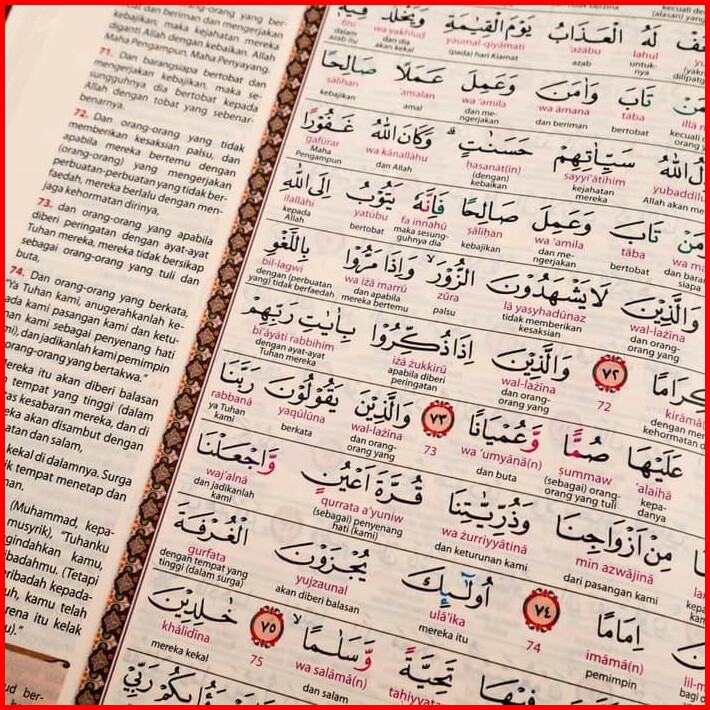 at dan beriman dan mengerjakan
kebajikan, maka kejahatan mereka
diganti Allah dengan kebaikan. Allah
Maha Pengampun, Maha Penyayang.
71. Dan barangsiapa bertobat dan
mengerjakan kebajikan, maka se-
sungguhnya dia bertobat kepada
Allah dengan tobat yang sebenar-
benarnya.
72. Dan orang-orang yang tidak
memberikan kesaksian palsu, dan
apabila mereka bertemu dengan
(orang-orang) yang mengerjakan
perbuatan-perbuatan yang tidak ber-
faedah, mereka berlalu dengan men-
jaga kehormatan dirinya,
73. dan orang-orang yang apabila
diberi peringatan dengan ayat-ayat
Tuhan mereka, mereka tidak bersikap
sebagai orang-orang yang tuli dan
buta,
74. Dan orang-orang yang berkata,
"Ya Tuhan kami, anugerahkanlah ke-
ada kami pasangan kami dan ketu-
nan kami sebagai penyenang hati
mi), dan jadikanlah kami pemimpin
orang-orang yang bertakwa."
ereka itu akan diberi balasan
tempat yang tinggi (dalam
tas kesabaran mereka, dan di
eka akan disambut dengan
atan dan salam,
kekal di dalamnya. Surga
ik tempat menetap dan
man.
(Muhammad, kepa-
musyrik), "Tuhanku
ngindahkan kamu,
ibadahmu. (Tetapi
eribadah kepada-
uh, kamu telah
rena itu kelak
u)."
لَهُ الْعَذَابُ يَوْمَ الْقِيٰمَةِ وَيَخْلُدْ فِيْهِ
lahul 'ażābu yaumal-qiyāmati wa yakhlud fīhī
untuk-nya azab (pada) hari Kiamat dan dia akan kekal dalam azab itu
مَنْ تَابَ وَاٰمَنَ وَعَمِلَ عَمَلًا صَالِحًا
tāba wa āmana wa 'amila 'amalan ṣāliḥan
bertobat dan beriman dan me-ngerjakan amal kebajikan
اللّٰهُ سَيِّاٰتِهِمْ حَسَنٰتٍۗ وَكَانَ اللّٰهُ غَفُوْرًا
yubaddilu sayyi'ātihim ḥasanāt(in) wa kānallāhu gafūrar
Allah akan me kejahatan mereka (dengan) kebaikan dan Allah Maha Pengampun
مَنْ تَابَ وَعَمِلَ صَالِحًا فَاِنَّهٗ يَتُوْبُ اِلَى اللّٰهِ
tāba wa 'amila ṣāliḥan fa innahū yatūbu ilallāhi
bertobat dan me-ngerjakan kebajikan maka sesung-guhnya dia bertobat kepada Allah
وَالَّذِيْنَ لَا يَشْهَدُوْنَ الزُّوْرَۙ وَاِذَا مَرُّوْا بِاللَّغْوِ
wal-lażīna lā yasyhadūnaz zūra wa iżā marrū bil-lagwi
dan orang-orang yang tidak memberikan kesaksian palsu dan apabila mereka bertemu dengan (perbuatan yang) tidak berfaedah
كِرَامًا ٧٢ وَالَّذِيْنَ اِذَا ذُكِّرُوْا بِاٰيٰتِ رَبِّهِمْ
kirāmā 72 wal-lażīna iżā żukkirū bi'āyāti rabbihim
dan orang-orang yang apabila diberi peringatan dengan ayat-ayat Tuhan mereka
عَلَيْهَا صُمًّا وَّعُمْيَانًا ٧٣ وَالَّذِيْنَ يَقُوْلُوْنَ رَبَّنَا
'alaihā ṣummaw wa 'umyānā(n) 73 wal-lażīna yaqūlūna rabbanā
kepa-danya (sebagai) orang-orang yang tuli dan buta dan orang-orang yang berkata ya Tuhan kami
مِنْ اَزْوَاجِنَا وَذُرِّيّٰتِنَا قُرَّةَ اَعْيُنٍ وَّاجْعَلْنَا
min azwājinā wa żurriyyātinā qurrata a'yuniw waj'alnā
dari pasangan kami dan keturunan kami (sebagai) penyenang hati (kami) dan jadikanlah kami
اِمَامًا ٧٤ اُولٰۤىِٕكَ يُجْزَوْنَ الْغُرْفَةَ
imāmā(n) 74 ulā'ika yujzaunal gurfata
pemimpin mereka itu akan diberi balasan dengan tempat yang tinggi (dalam surga)
فِيْهَا تَحِيَّةً وَّسَلٰمًاۙ ٧٥ خٰلِدِيْنَ
taḥiyyat wa salāmā(n) 75 khālidīna
dan salam mereka kekal